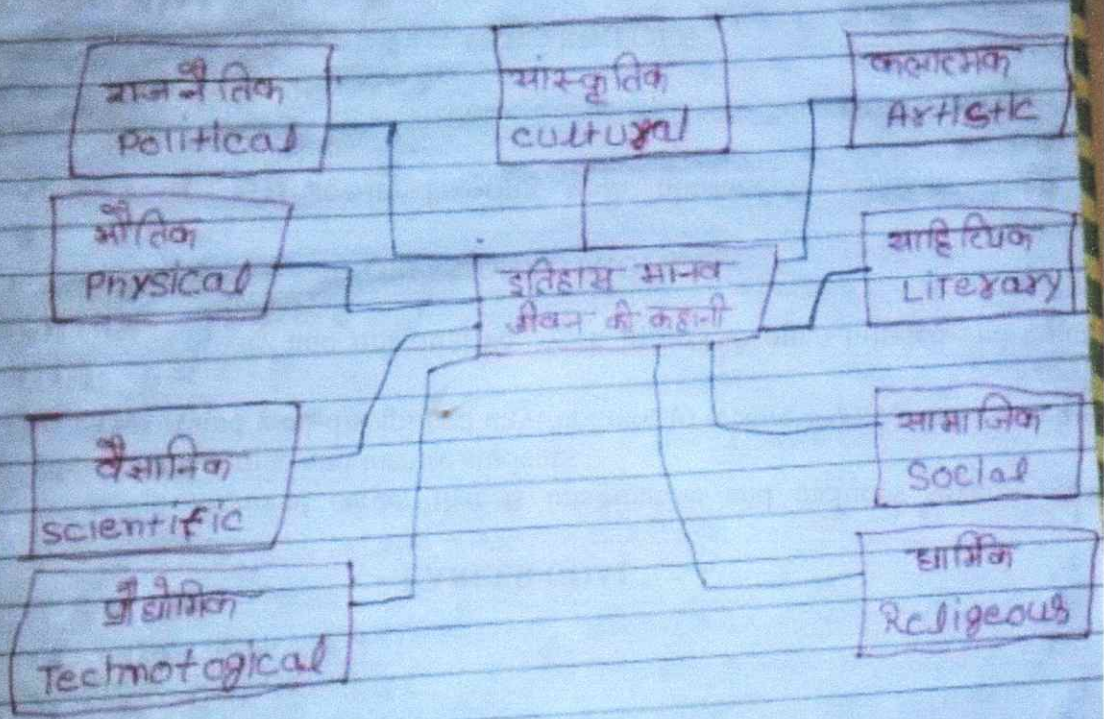 राजनैतिक
Political
सांस्कृतिक
Cultural
कलात्मक
Artistic
भौतिक
Physical
इतिहास मानव
जीवन की कहानी
साहित्यिक
Literary
वैज्ञानिक
Scientific
सामाजिक
Social
प्रौद्योगिक
Technotogical
धार्मिक
Religeous